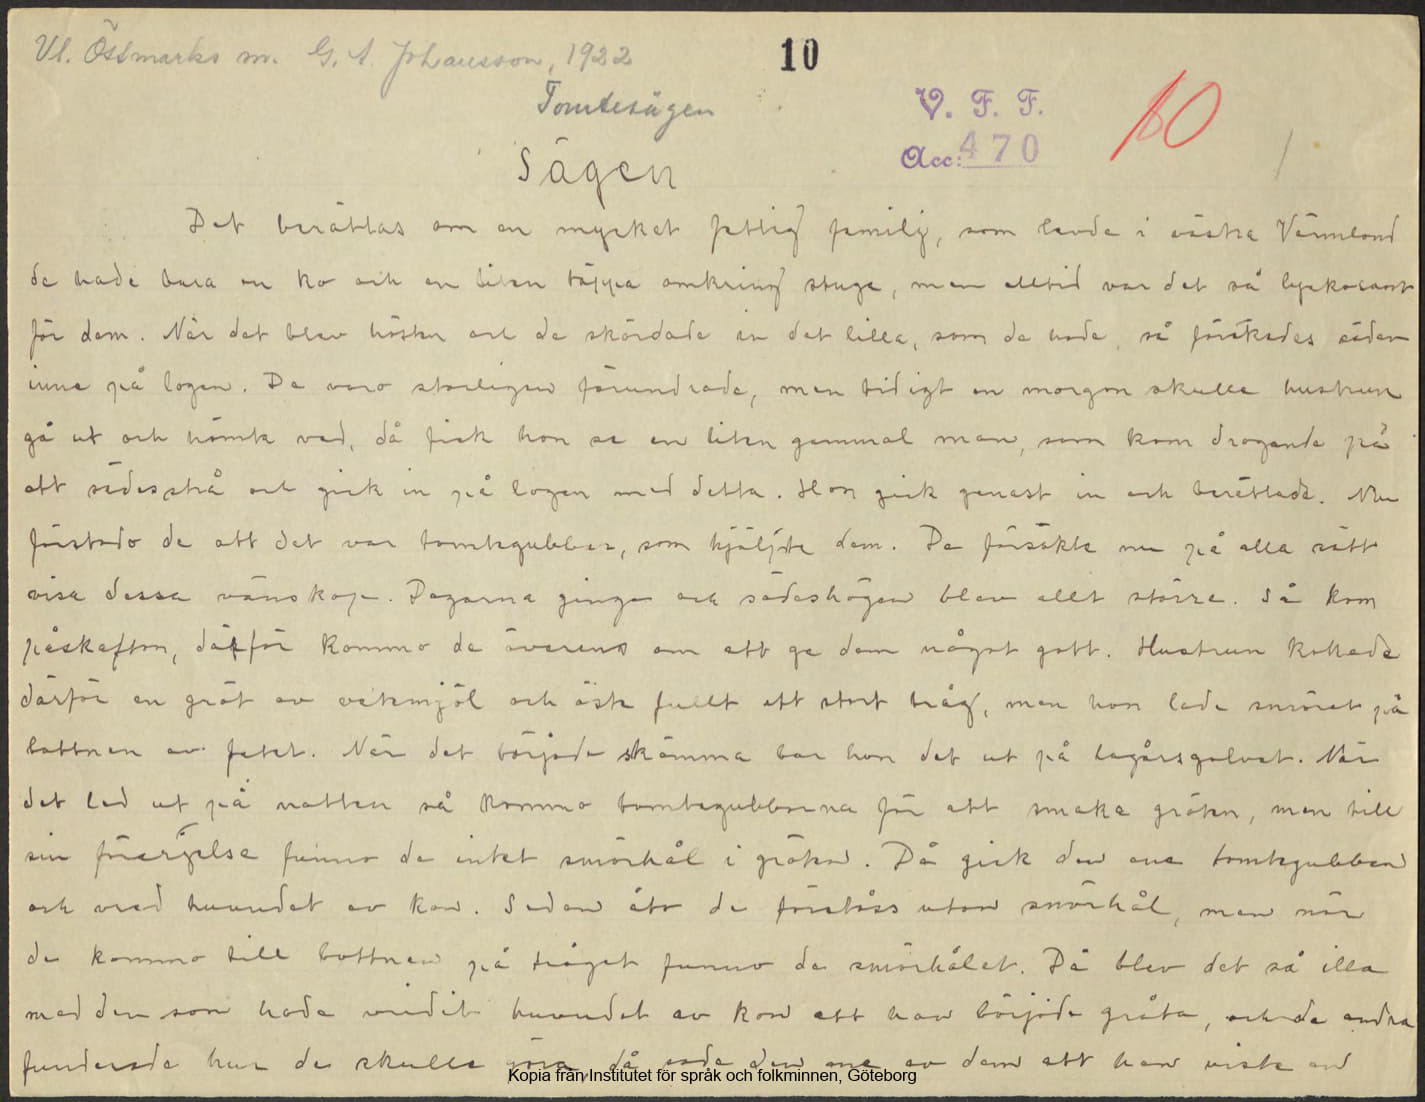 Vl. Östmarks sn. G. A. Johansson, 1922
10
Tomtesägen
V. F. F.
Acc: 470
10
1
Sägen
Det berättas om en mycket fattig familj, som levde i västra Värmland
de hade bara en ko och en liten täppa omkring stuga, men alltid var det så lyckosamt
för dem. När det blev hösten och de skördade in det lilla, som de hade, så förökades säden
inne på logen. De voro storligen förundrade, men tidigt en morgon skulle hustrun
gå ut och hämta ved, då fick hon se en liten gammal man, som kom dragande på
ett sädesstrå och gick in på logen med detta. Hon gick genast in och berättade. Nu
förstodo de att det var tomtegubbar, som hjälpte dem. De försökte nu på alla sätt
visa dessa vänskap. Dagarna gingo och sädeshögen blev allt större. Så kom
påskafton, därför kommo de överens om att ge dem något gott. Hustrun kokade
därför en gröt av vetemjöl och öste fullt ett stort tråg, men hon lade smöret på
bottnen av fatet. När det började skämma bar hon det ut på lagårsgolvet. När
det led ut på natten så kommo tomtegubbarna för att smaka gröten, men till
sin förargelse funno de intet smörhål i gröten. Då gick den ene tomtegubben
och vred huvudet av kon. Sedan åto de förståss utan smörhål, men när
de kommo till bottnen på tråget funno de smörhålet. Då blev det så illa
med den som hade vridit huvudet av kon att han började gråta, och de andra
funderade hur de skulle göra, då sade den ene av dem att han visste en
Kopia från Institutet för språk och folkminnen, Göteborg